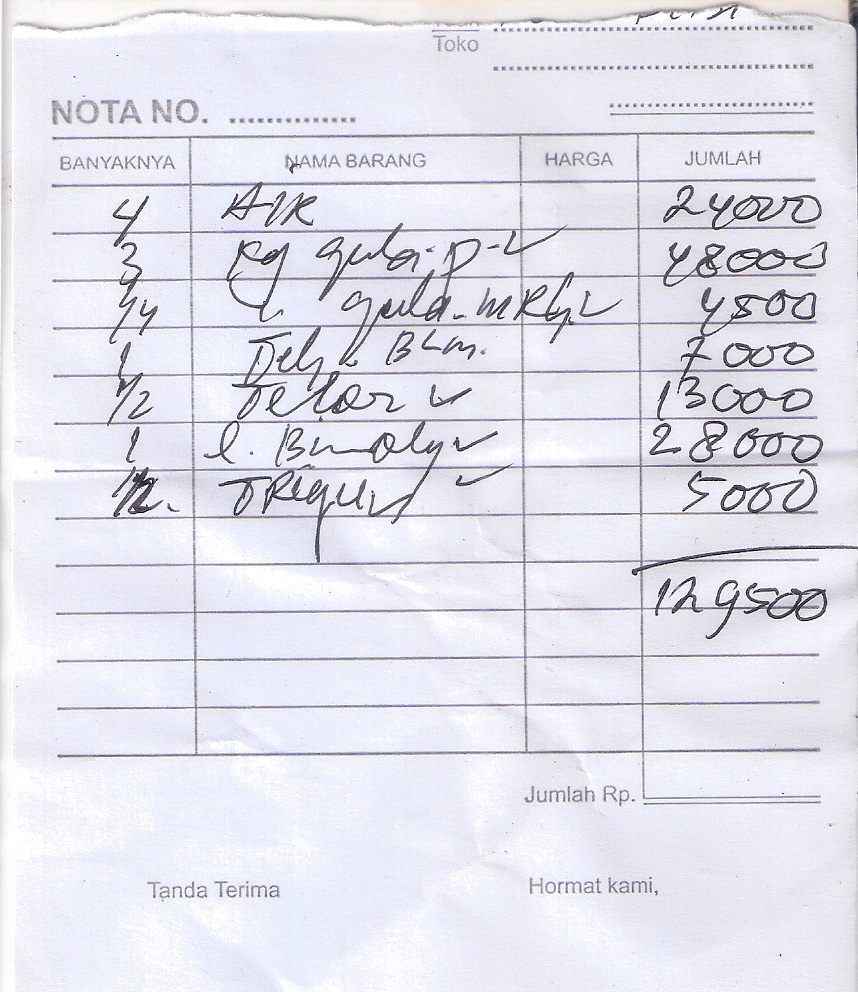 Toko
NOTA NO.
BANYAKNYA NAMA BARANG HARGA JUMLAH
4 AIR 24000
3 Kg gula.p. 48000
1/4 gula.mRh. 4500
1 Teh. 7000
1/2 Telor 13000
1 l. Bimoly 28000
1/2. TRigu 5000
129500
Jumlah Rp.
Tanda Terima Hormat kami,